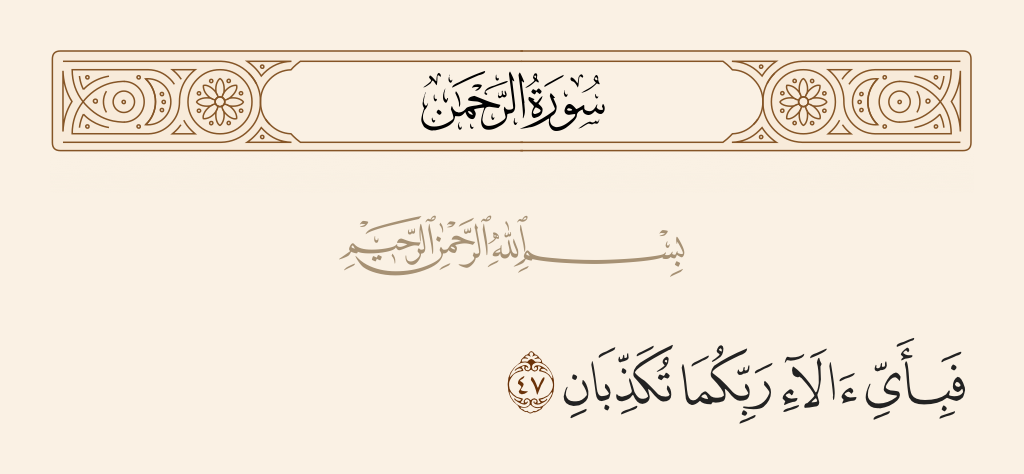 سُورَةُ الرَّحْمَٰن
بِسْمِ ٱللَّهِ ٱلرَّحْمَٰنِ ٱلرَّحِيمِ
فَبِأَيِّ ءَالَآءِ رَبِّكُمَا تُكَذِّبَانِ ٤٧